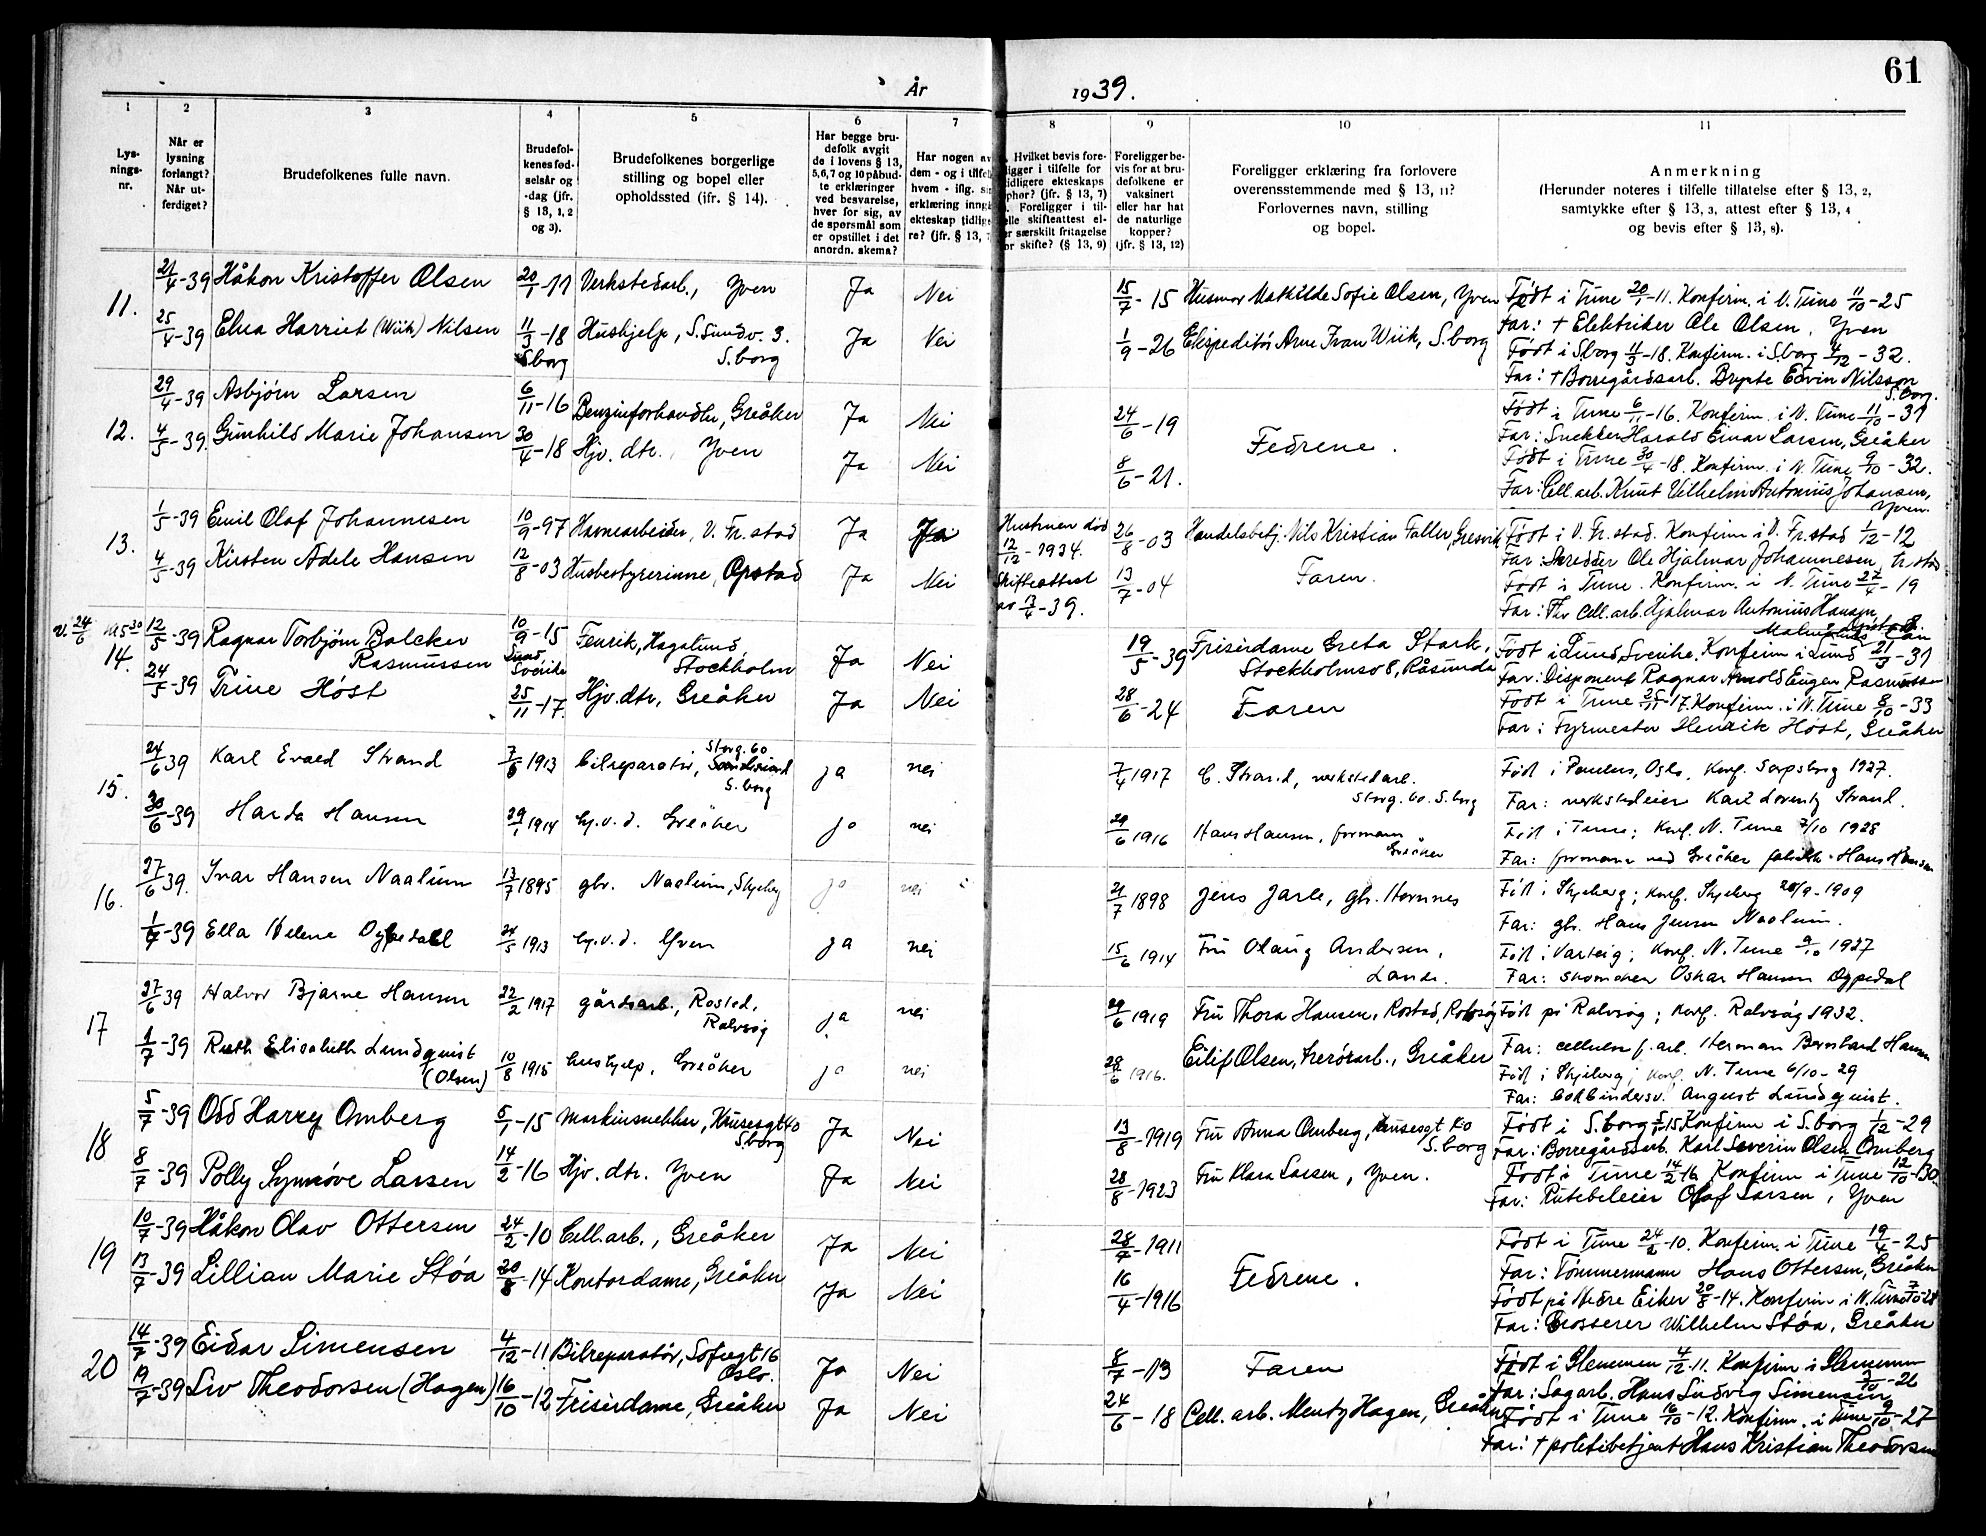 År
1939.
61
1
2
3
4
5
6
7
8
9
10
11
Lys-
nings-
nr.
Når er
lysning
forlangt?
Når ut-
ferdiget?
Brudefolkenes fulle navn.
Brudefol-
kenes fød-
selsår og
-dag (jfr.
§ 13, 1, 2
og 3).
Brudefolkenes borgerlige
stilling og bopel eller
opholdssted (ifr. § 14).
Har begge bru-
defolk avgit
de i lovens § 13,
5,6,7 og 10 påbud-
te erklæringer
ved besvarelse,
hver for sig, av
de spørsmål som
er opstillet i det
anordn. skema?
Har nogen av
dem - og i tilfelle
hvem - iflg. sin
erklæring inngått
ekteskap tidlige-
re? (jfr. § 13, 7
Hvilket bevis fore-
ligger i tilfelle for
tidligere ekteskaps
ophør? (jfr. § 13, 7)
Foreligger i til-
felle skifteattest el-
ler særskilt fritagelse
for skifte? (§ 13, 9)
Foreligger be-
vis for at bru-
defolkene er
vaksinert
eller har hat
de naturlige
kopper?
(jfr. § 13, 12)
Foreligger erklæring fra forlovere
overensstemmende med § 13, 11?
Forlovernes navn, stilling
og bopel.
Anmerkning
(Herunder noteres i tilfelle tillatelse efter § 13, 2,
samtykke efter § 13, 3, attest efter § 13, 4
og bevis efter § 13, 8).
11.
21/4-39 Håkon Kristoffer Olsen 20/1-11 Verkstedarb., Yven Ja Nei 15/7-15 Husmor Mathilde Sofie Olsen, Yven Født i Tune 20/1-11. Konfirm. i N. Tune 11/10-25
Far: † Elektriker Ole Olsen, Yven
25/4-39 Elna Harriet (Wiik) Nilsen 11/3-18 Hushjelp, S.Sundv. 3. Ja Nei 1/9-26 Ekspeditør Arne Ivan Wiik, S.borg Født i S.borg 11/3-18. Konfirm. i S.borg 4/12-32.
S.borg S.borg Far: † Borregårdsarb. Brynte Edvin Nilsson
S.borg.
12.
29/4-39 Asbjørn Larsen 6/11-16 Benzinforhandler, Greåker Ja Nei 24/6-19 Født i Tune 6/11-16. Konfirm. i N. Tune 11/10-31
Fedrene. Far: Snekker Harald Einar Larsen, Greåker
4/5-39. Gunhild Marie Johansen 30/4-18 Hjv. dtr., Yven Ja Nei 8/6-21. Født i Tune 30/4-18. Konfirm. i N. Tune 9/10-32.
Far: Cell.arb. Knut Vilhelm Antonius Johansen,
Yven.
13.
1/5-39 Emil Olaf Johannesen 10/9-97 Havnearbeider, V. Fr.stad Ja Ja Hustruen død 12/12-1934. 26/8-03 Handelsbetj. Nils Kristian Faller, Gresvik Født i V. Fr.stad. Konfirm i V. Fr.stad 1/12-12
Far: Skredder Ole Hjalmar Johannesen, Fr.stad
4/5-39 Kirsten Adele Hansen 12/8-03 Husbestyrerinne, Opstad Ja Nei Skifteattest av 13/4-39. 13/7-04 Faren. Født i Tune. Konfirm. i N. Tune 27/4-19
Far: Fhv cell.arb. Hjalmar Antonius Hansen
14.
12/5-39 Ragnar Torbjörn Balcker 10/9-15 Fenrik, Hagalund,
Rasmussen Lund Sverike Stockholm Ja Nei 19/5-39 Frisérdame Greta Stark, Stockholmso 8, Råsunda Født i Lund, Sverike. Konfirm i Lund 21/5-31
Far: Disponent Ragnar Arnold Eugen Rasmussen
24/5-39 Trine Høst 25/11-17. Hjv. dtr, Greåker Ja Nei 28/6-24 Faren Født i Tune 25/11-17. Konfirm. i N. Tune 8/10-33
Far: Fyrmester Henrik Høst, Greåker
15.
24/6 39 Karl Evald Strand 7/6 1913 Bilreparatør, Storg. 60 S.borg ja nei 7/4 1917 C. Strand, verkstedarb. Storg. 60. S.borg Født i Paulus, Oslo. Konf. Sarpsborg 1927.
Far: verkstedeier Karl Lorentz Strand.
30/6-39 Harda Hansen 29/1 1914 hj.v.d. Greåker ja nei 29/6 1916 Hans Hansen, formann, Greåker Født i Tune; Konf. N. Tune 7/10 1928
Far: formann ved Greåker fabrikk Hans Hansen
16.
27/6 39. Ivar Hansen Naalum 13/7 1895 gbr. Naalum, Skjeberg ja nei 21/7 1898 Jens Jarle, gbr. Hornnes Født i Skjeberg; Konf. Skjeberg 20/9-1909
Far: gbr. Hans Jensen Naalum.
1/7-39 Ella Helene Dypedal 24/5 1913 hj.v.d. Yven ja nei 15/6 1914 Fru Olaug Andersen, Lande. Født i Varteig; Konf. N. Tune 9/10 1927
Far: skomaker Oskar Hansen Dypedal
17
27/6 39 Halvor Bjarne Hansen 22/2 1917 gårdsarb., Rostad, Rolvsøy ja nei 29/6 1919 Fru Thora Hansen, Rostad, Rolvsøy Født på Rolvsøy; Konf. Rolvsøy 1932.
Far: cellulosef.arb. Herman Bernhard Hansen
1/7-39 Ruth Elisabeth Lundquist (Olsen) 10/8 1915 hushjelp, Greåker ja nei 28/6 1916. Eilif Olsen, trerørarb., Greåker Født i Skjeberg; Konf. N. Tune 6/10-29
Far: bokbindersv. August Lundquist.
18
5/7-39 Odd Harry Omberg 5/1-15 Maskinsnekker, Krusesgt 40 S.borg Ja Nei 13/8-1919 Fru Anna Omberg, Krusesgt 40 S.borg Født i S.borg 5/1-15 Konfirm i S.borg 1/12-29
Far: Borregårdsarb. Karl Severin Olsen Omberg
8/7-39 Polly Synnøve Larsen 14/2-16 Hjv. dtr. Yven Ja Nei 28/8-1923 Fru Klara Larsen, Yven. Født i Tune 14/2-16 Konfirm i Tune 12/10-30
Far: Rutebileier Olaf Larsen, Yven
19
10/7-39 Håkon Olav Ottersen 24/2-10 Cell.arb., Greåker Ja Nei 28/7-1911 Født i Tune 24/2-10. Konfirm. i Tune 19/4-25
Fedrene. Far: Tømmermann Hans Ottersen, Greåker
13/7-39 Lillian Marie Støa 20/8-14 Kontordame, Greåker Ja Nei 16/4-1916 Født på Nedre Eiker 20/8-14. Konfirm i N. Tune 7/10-28
Far: Grosserer Wilhelm Støa, Greåker
20
14/7-39 Eidar Simensen 4/12-11 Bilreparatør, Sofiegt 16 Oslo. Ja Nei 8/7-13 Faren Født i Glemmen 4/12-11. Konfirm i Glemmen 3/10-26
Far: Sagarb. Hans Ludvig Simensen
19/7-39 Liv Theodorsen (Hagen) 16/10-12 Frisérdame, Greåker Ja Nei 24/6-18 Cell. arb. Mentz Hagen, Greåker Født i Tune 16/10-12. Konfirm. i Tune 9/10-27
Far: † politibetjent Hans Kristian Theodorsen